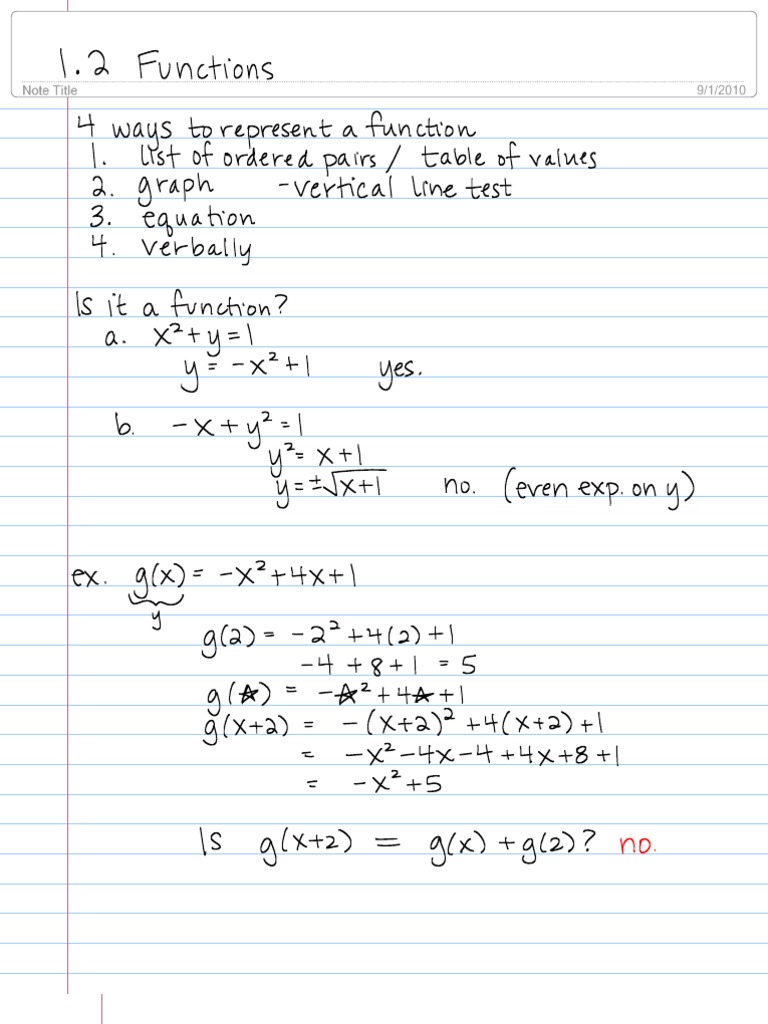 1.2 Functions
Note Title 9/1/2010
4 ways to represent a function
1. list of ordered pairs / table of values
2. graph - vertical line test
3. equation
4. verbally
Is it a function?
a. x² + y = 1
y = -x² + 1 yes.
b. -x + y² = 1
y² = x + 1
y = ±√(x+1) no. (even exp. on y)
ex. g(x) = -x² + 4x + 1
y
g(2) = -2² + 4(2) + 1
-4 + 8 + 1 = 5
g(☆) = -☆² + 4☆ + 1
g(x+2) = -(x+2)² + 4(x+2) + 1
= -x² - 4x - 4 + 4x + 8 + 1
= -x² + 5
Is g(x+2) = g(x) + g(2)? no.